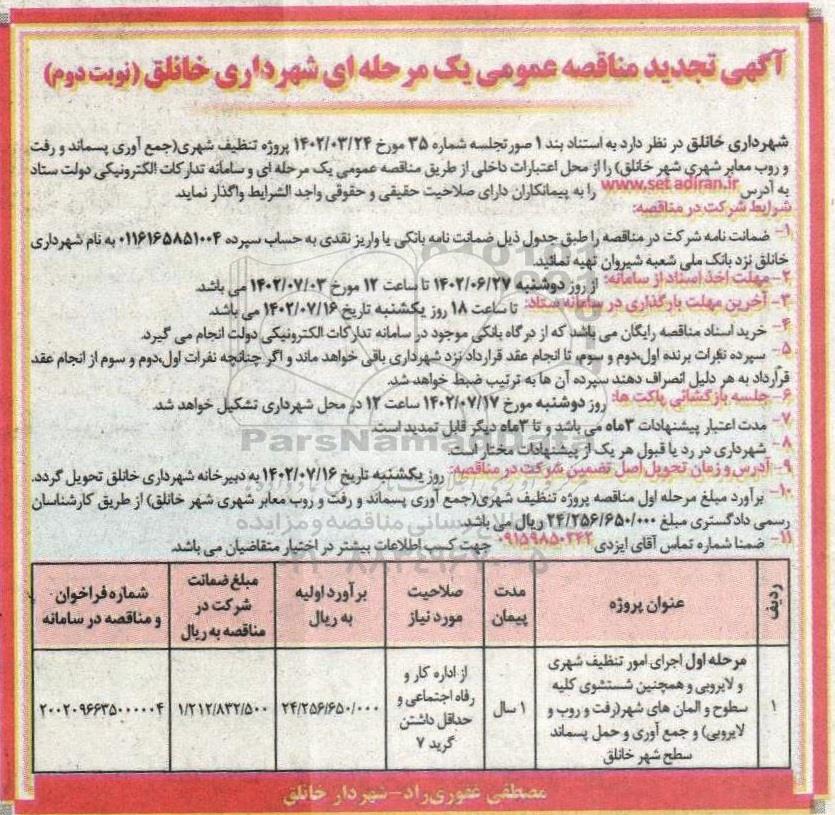 آگهی تجدید مناقصه عمومی یک مرحله ای شهرداری خانلق (نوبت دوم)
شهرداری خانلق در نظر دارد به استناد بند ۱ صورتجلسه شماره ۳۵ مورخ ۱۴۰۲/۰۳/۲۴ پروژه تنظیف شهری(جمع آوری پسماند و رفت
و روب معابر شهری شهر خانلق) را از محل اعتبارات داخلی از طریق مناقصه عمومی یک مرحله ای و سامانه تدارکات الکترونیکی دولت ستاد
به آدرس www.setadiran.ir را به پیمانکاران دارای صلاحیت حقیقی و حقوقی واجد الشرایط واگذار نماید.
شرایط شرکت در مناقصه:
۱- ضمانت نامه شرکت در مناقصه را طبق جدول ذیل ضمانت نامه بانکی یا واریز نقدی به حساب سپرده ۰۱۱۶۱۶۵۸۵۱۰۰۴ به نام شهرداری
خانلق نزد بانک ملی شعبه شیروان تهیه نمائید.
۲- مهلت اخذ اسناد از سامانه: از روز دوشنبه ۱۴۰۲/۰۶/۲۷ تا ساعت ۱۲ مورخ ۱۴۰۲/۰۷/۰۳ می باشد.
۳- آخرین مهلت بارگذاری در سامانه ستاد: تا ساعت ۱۸ روز یکشنبه تاریخ ۱۴۰۲/۰۷/۱۶ می باشد.
۴- خرید اسناد مناقصه رایگان می باشد که از درگاه بانکی موجود در سامانه تدارکات الکترونیکی دولت انجام می گیرد.
۵- سپرده نفرات برنده اول،دوم و سوم، تا انجام عقد قرارداد نزد شهرداری باقی خواهد ماند و اگر چنانچه نفرات اول،دوم و سوم از انجام عقد
قرارداد به هر دلیل انصراف دهند سپرده آن ها به ترتیب ضبط خواهد شد.
۶- جلسه بازگشائی پاکت ها: روز دوشنبه مورخ ۱۴۰۲/۰۷/۱۷ ساعت ۱۲ در محل شهرداری تشکیل خواهد شد.
۷- مدت اعتبار پیشنهادات ۳ماه می باشد و تا ۳ماه دیگر قابل تمدید است.
۸- شهرداری در رد یا قبول هر یک از پیشنهادات مختار است.
۹- آدرس و زمان تحویل اصل تضمین شرکت در مناقصه: روز یکشنبه تاریخ ۱۴۰۲/۰۷/۱۶ به دبیرخانه شهرداری خانلق تحویل گردد.
۱۰- برآورد مبلغ مرحله اول مناقصه پروژه تنظیف شهری(جمع آوری پسماند و رفت و روب معابر شهری شهر خانلق) از طریق کارشناسان
رسمی دادگستری مبلغ ۲۴/۲۵۶/۶۵۰/۰۰۰ ریال می باشد.
۱۱- ضمنا شماره تماس آقای ایزدی ۰۹۱۵۹۸۵۰۲۴۲ جهت کسب اطلاعات بیشتر در اختیار متقاضیان می باشد.
ParsNamadData
ردیف
عنوان پروژه
مدت
پیمان
صلاحیت
مورد نیاز
برآورد اولیه
به ریال
مبلغ ضمانت
شرکت در
مناقصه به ریال
شماره فراخوان
و مناقصه در سامانه
۱
مرحله اول اجرای امور تنظیف شهری
و لایروبی و همچنین شستشوی کلیه
سطوح و المان های شهر(رفت و روب و
لایروبی) و جمع آوری و حمل پسماند
سطح شهر خانلق
۱ سال
از اداره کار و
رفاه اجتماعی و
حداقل داشتن
گرید ۷
۲۴/۲۵۶/۶۵۰/۰۰۰
۱/۲۱۲/۸۳۲/۵۰۰
۲۰۰۲۰۹۶۶۳۵۰۰۰۰۰۴
مصطفی غفوری راد- شهردار خانلق